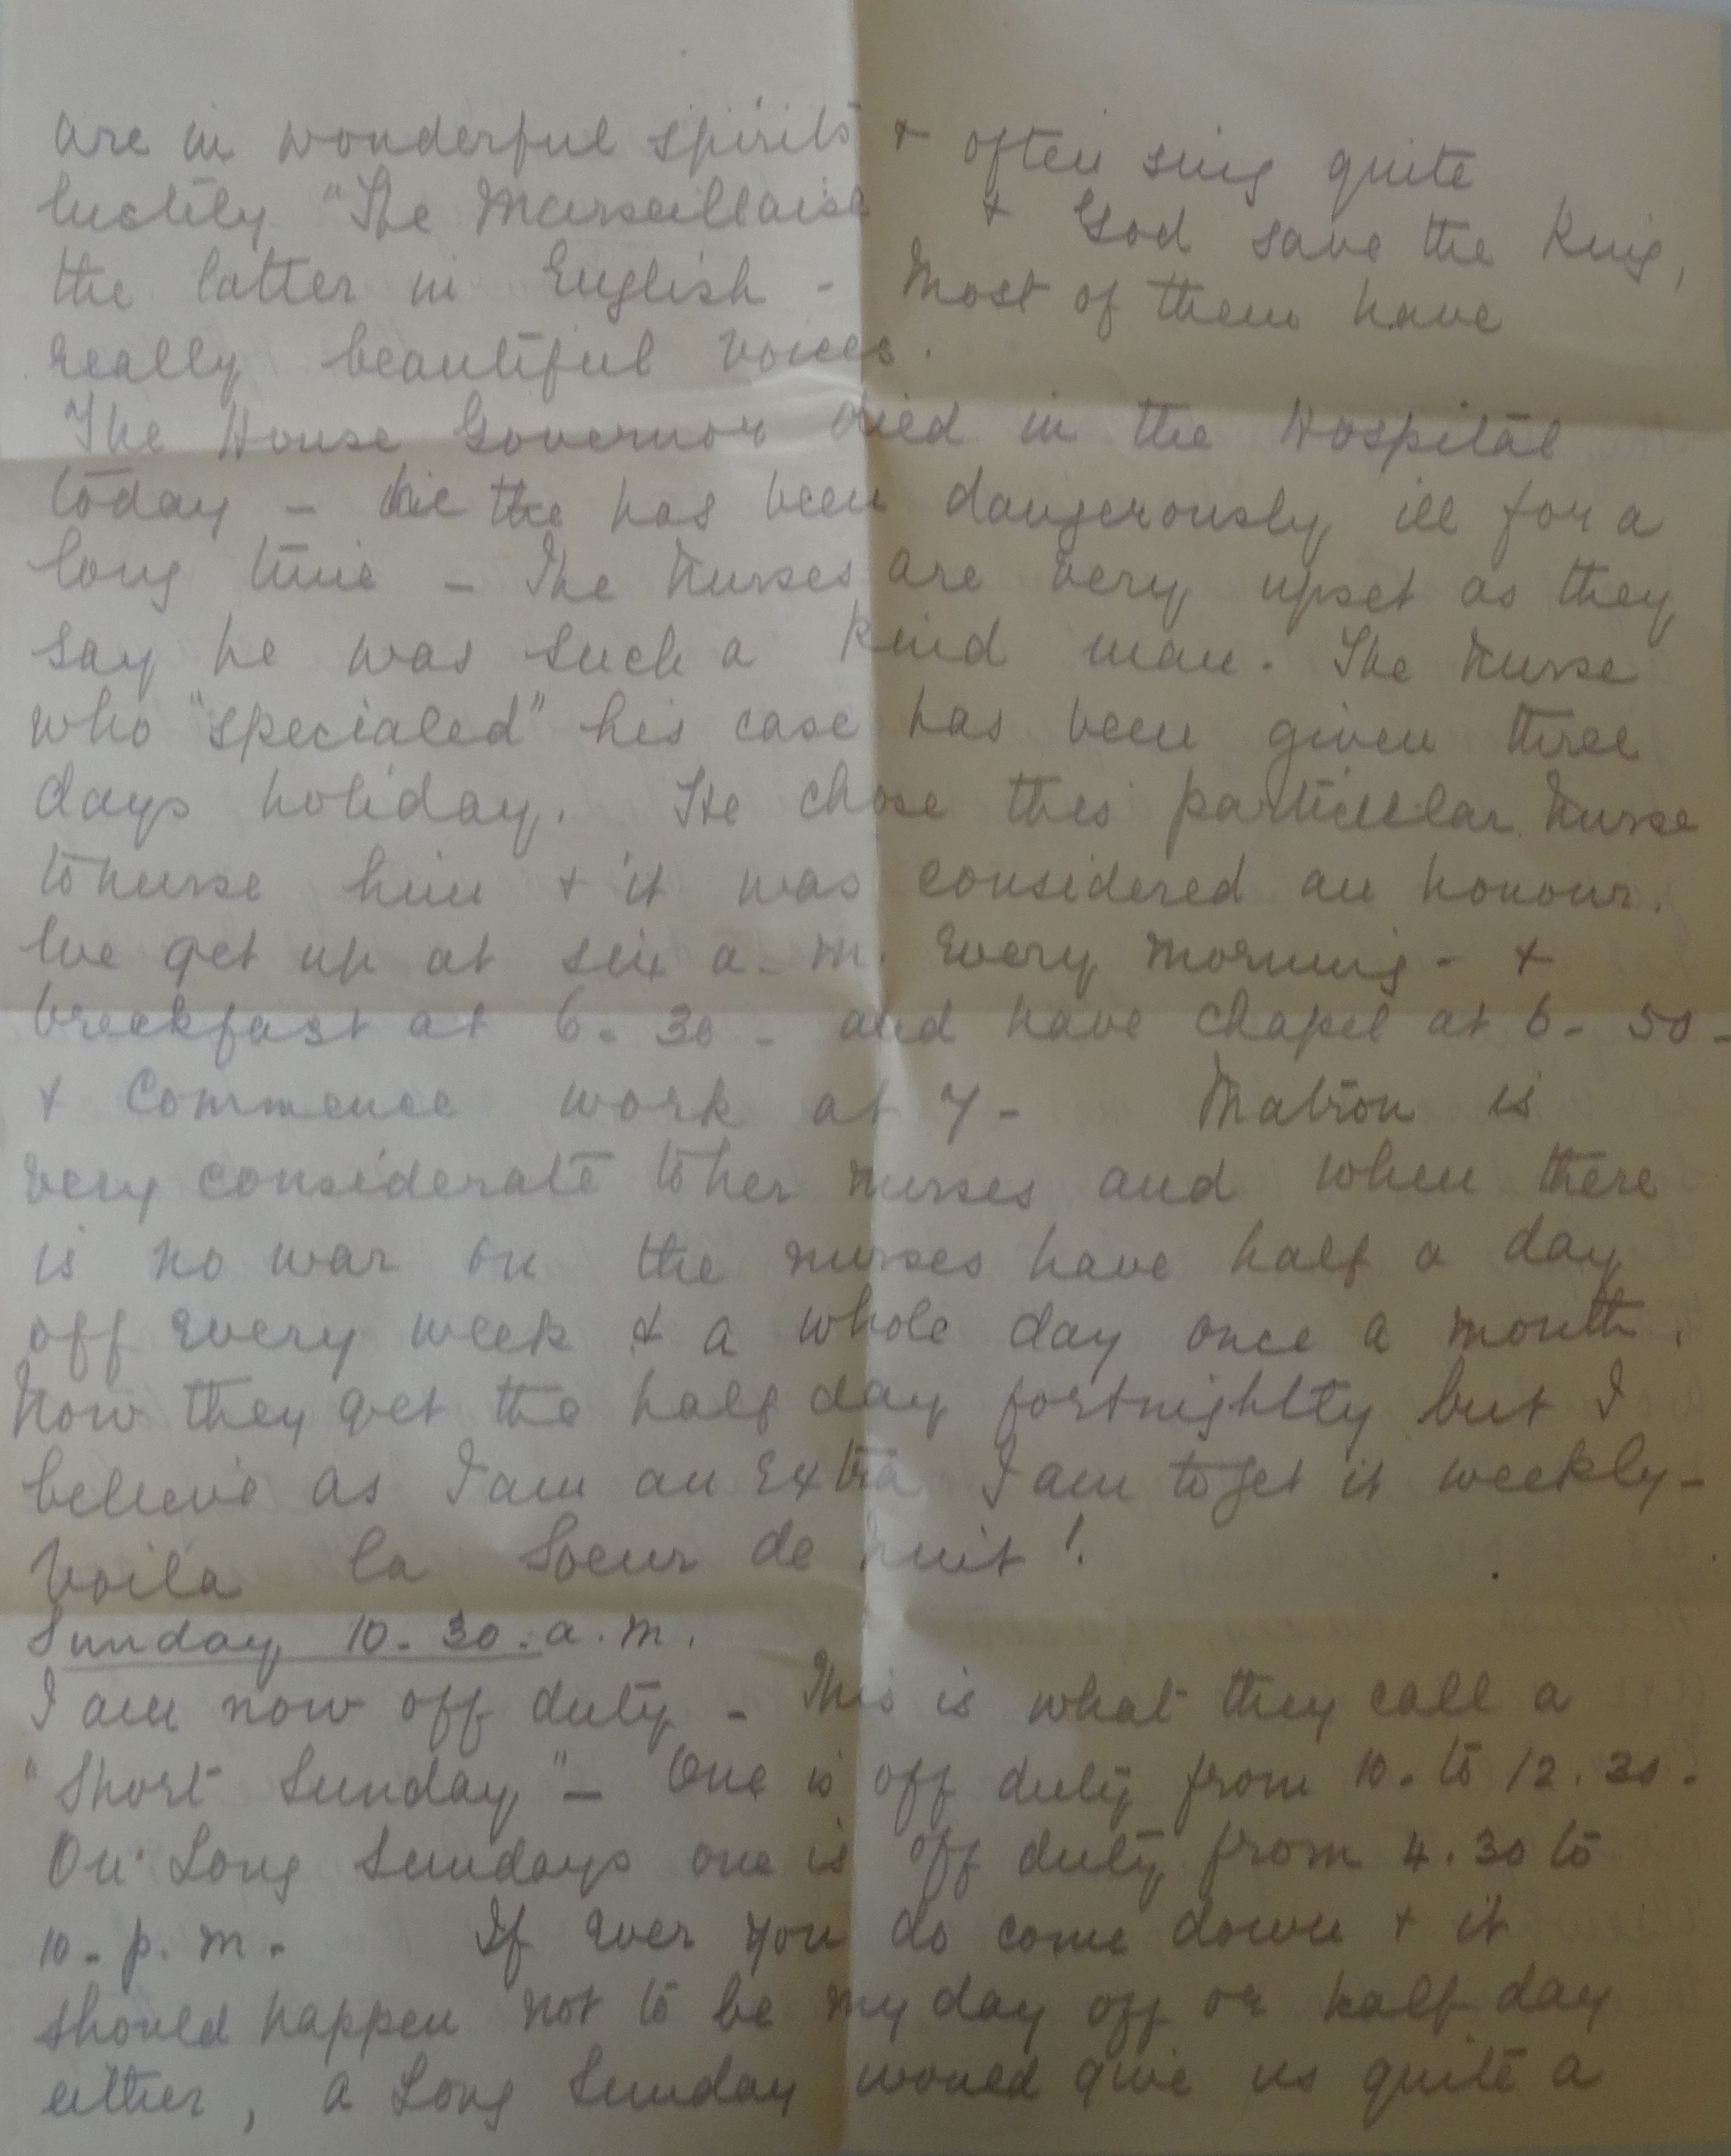 are in wonderful spirits + often sing quite
lustily "The Marseillaise + God save the King,
the latter in English - Most of them have
really beautiful voices.
The House Governor died in the Hospital
today - he has been dangerously ill for a
long time - The Nurses are very upset as they
say he was such a kind man. The Nurse
who "specialed" his case has been given three
days holiday. He chose this particular Nurse
to nurse him + it was considered an honour.
We get up at six a.m. every morning - +
breakfast at 6.30 - and have chapel at 6-50-
+ commence work at 7- Matron is
very considerate to her nurses and when there
is no war on the nurses have half a day
off every week & a whole day once a month.
Now they get the half day fortnightly but I
believe as I am an extra I am to get it weekly-
Voila la Soeur de nuit!
Sunday 10.30.a.m.
I am now off duty - This is what they call a
"Short Sunday" - One is off duty from 10. to 12.30.
On Long Sundays one is off duty from 4.30 to
10-p.m. If ever you do come down + it
should happen not to be my day off or half day
either, a Long Sunday would give us quite a